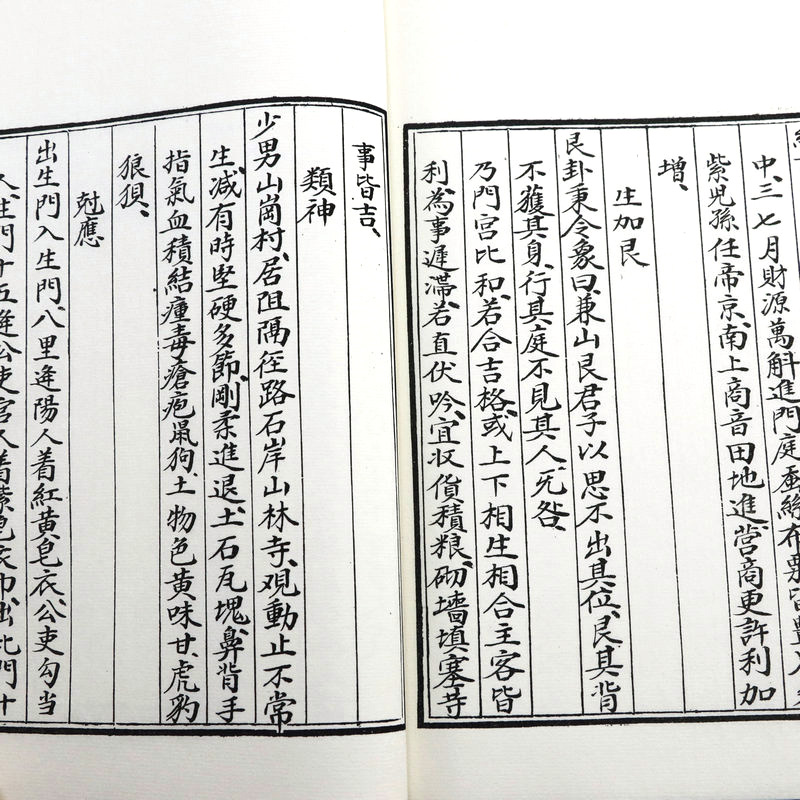 中、三七月財源萬斛進門庭蚕絲布
紫児孫任帝京、南上商音田地進、営商更許利加
增、
生加艮
艮卦秉令象曰、兼山艮君子以思不出其位、艮其背
不䕶其身、行其庭不見其人、旡咎、
乃門宮比和、若合吉格、或上下相生相合主客皆
利、為事遲滯、若直伏吟、宜収貨積粮、砌墻填塞等
事皆吉、
類神
少男山崗村、居阻隔径路石岸山林寺、观動止不常
生、减有時堅硬多節、剛柔進退、土石瓦塊、鼻背手
指氣血積結瘇毒瘡疤鼠狗、土物色黄味甘、虎豹
狼狽、
尅應
出生門入生門、八里逄陽人着紅黄皂衣、公吏勾当
人、生門十五逄公吏官人着紫皂衣巾、出比門十